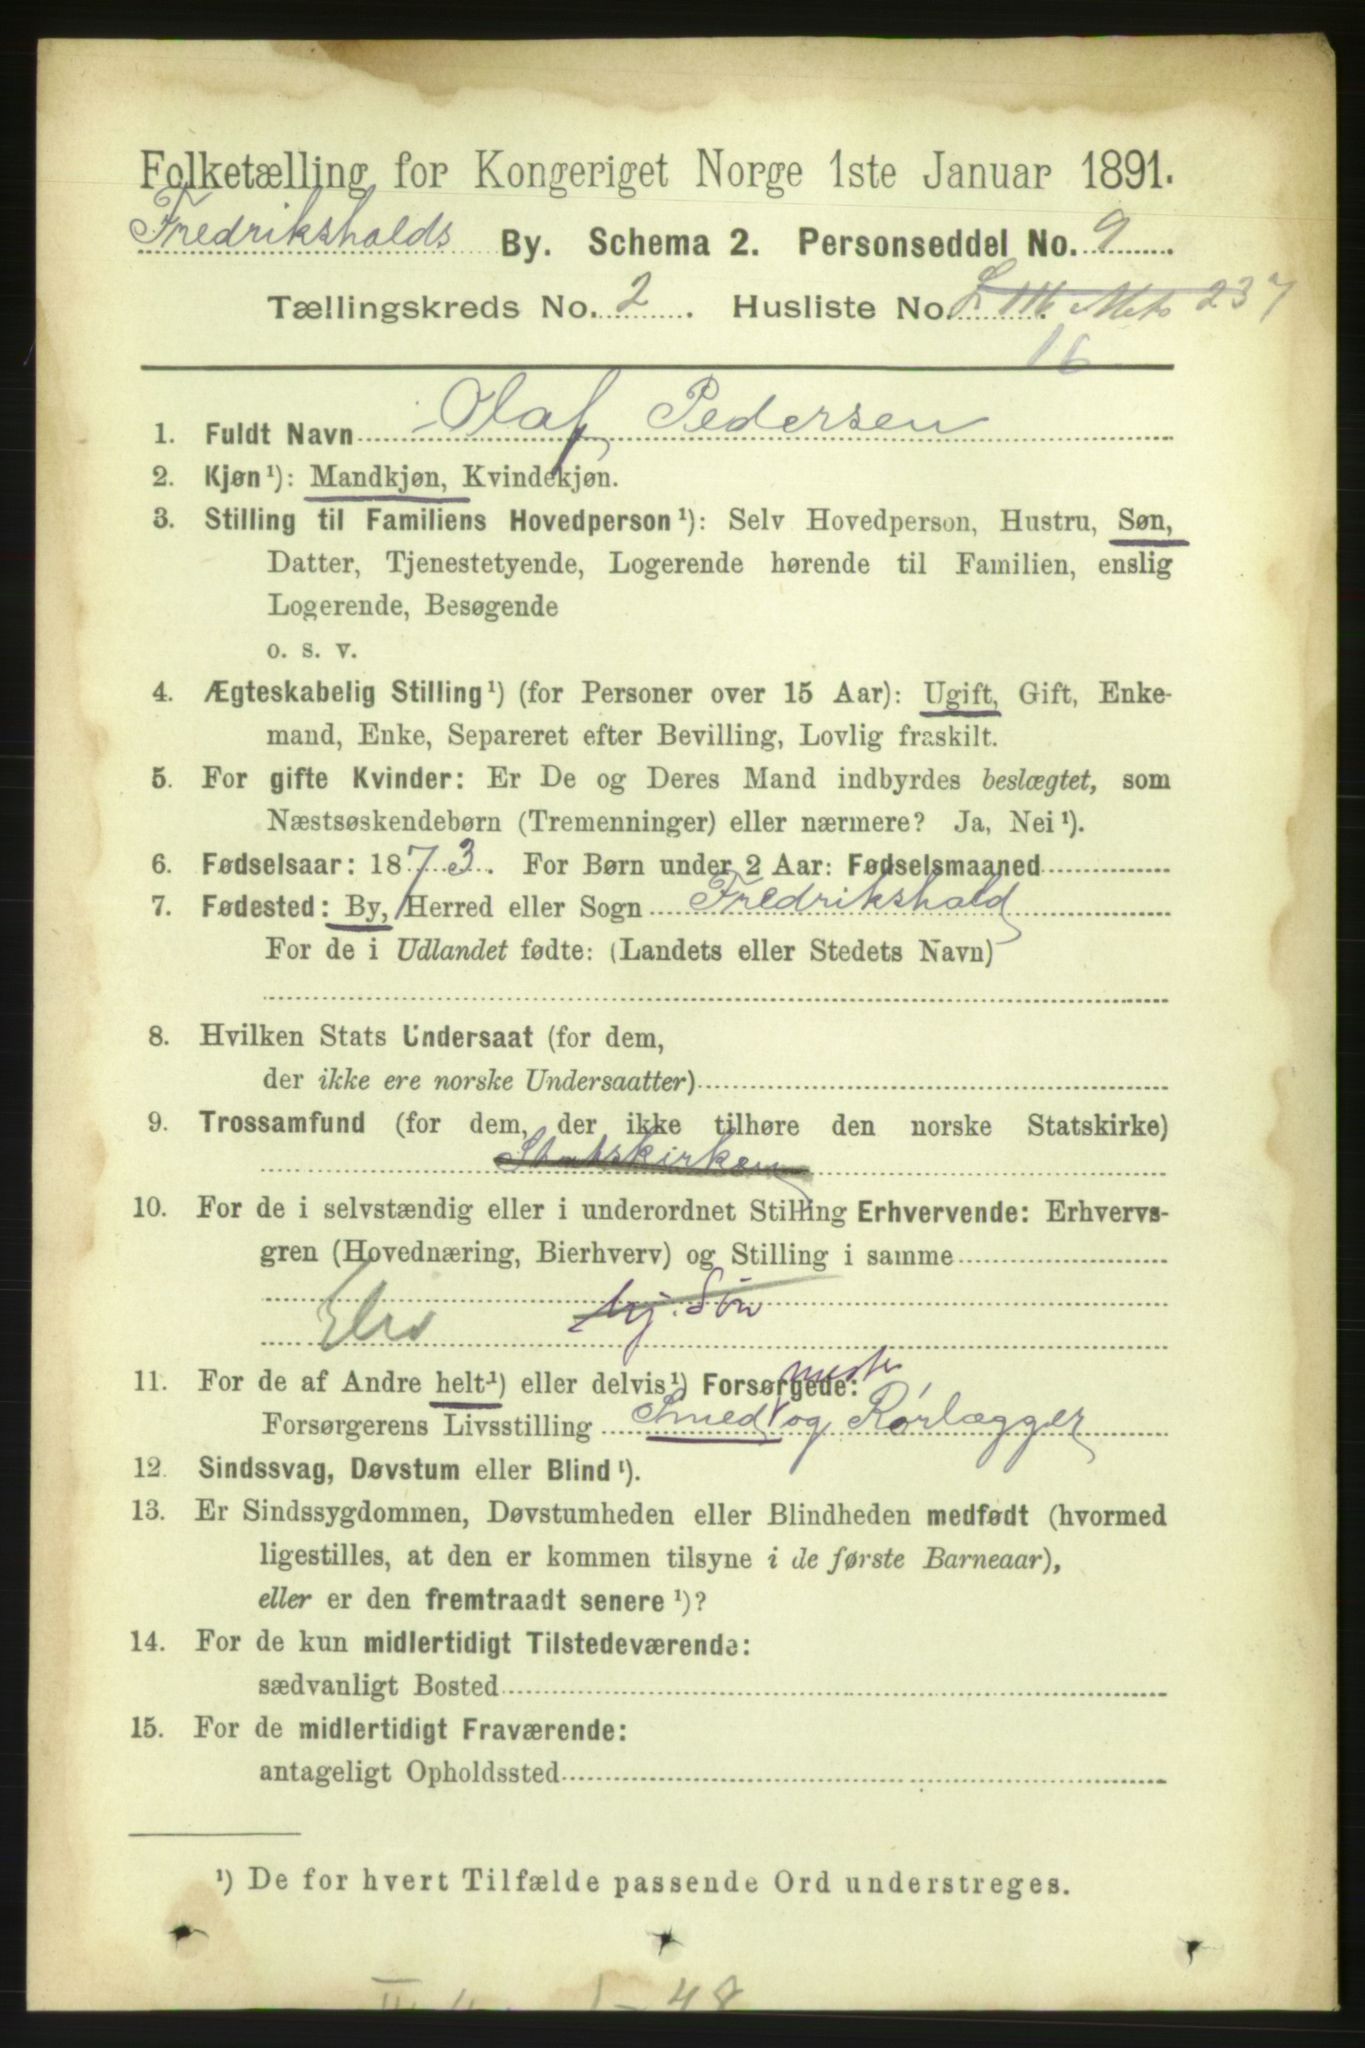 Folketælling for Kongeriget Norge 1ste Januar 1891.
Fredrikshalds By. Schema 2. Personseddel No. 9
Tællingskreds No. 2. Husliste No. 237
16
1. Fuldt Navn Olaf Pedersen
2. Kjøn¹): Mandkjøn, Kvindekjøn.
3. Stilling til Familiens Hovedperson¹): Selv Hovedperson, Hustru, Søn,
Datter, Tjenestetyende, Logerende hørende til Familien, enslig
Logerende, Besøgende
o. s. v.
4. Ægteskabelig Stilling¹) (for Personer over 15 Aar): Ugift, Gift, Enke-
mand, Enke, Separeret efter Bevilling, Lovlig fraskilt.
5. For gifte Kvinder: Er De og Deres Mand indbyrdes beslægtet, som
Næstsøskendebørn (Tremenninger) eller nærmere? Ja, Nei¹).
6. Fødselsaar: 1873. For Børn under 2 Aar: Fødselsmaaned
7. Fødested: By, Herred eller Sogn Fredrikshald
For de i Udlandet fødte: (Landets eller Stedets Navn)
8. Hvilken Stats Undersaat (for dem,
der ikke ere norske Undersaatter)
9. Trossamfund (for dem, der ikke tilhøre den norske Statskirke)
Statskirken
10. For de i selvstændig eller i underordnet Stilling Erhvervende: Erhvervs-
gren (Hovednæring, Bierhverv) og Stilling i samme
Søn
Elev
11. For de af Andre helt¹) eller delvis¹) Forsørgede:
mester
Forsørgerens Livsstilling Smed og Rørlægger
12. Sindssvag, Døvstum eller Blind¹).
13. Er Sindssygdommen, Døvstumheden eller Blindheden medfødt (hvormed
ligestilles, at den er kommen tilsyne i de første Barneaar),
eller er den fremtraadt senere¹)?
14. For de kun midlertidigt Tilstedeværende:
sædvanligt Bosted
15. For de midlertidigt Fraværende:
antageligt Opholdssted
¹) De for hvert Tilfælde passende Ord understreges.
1-48